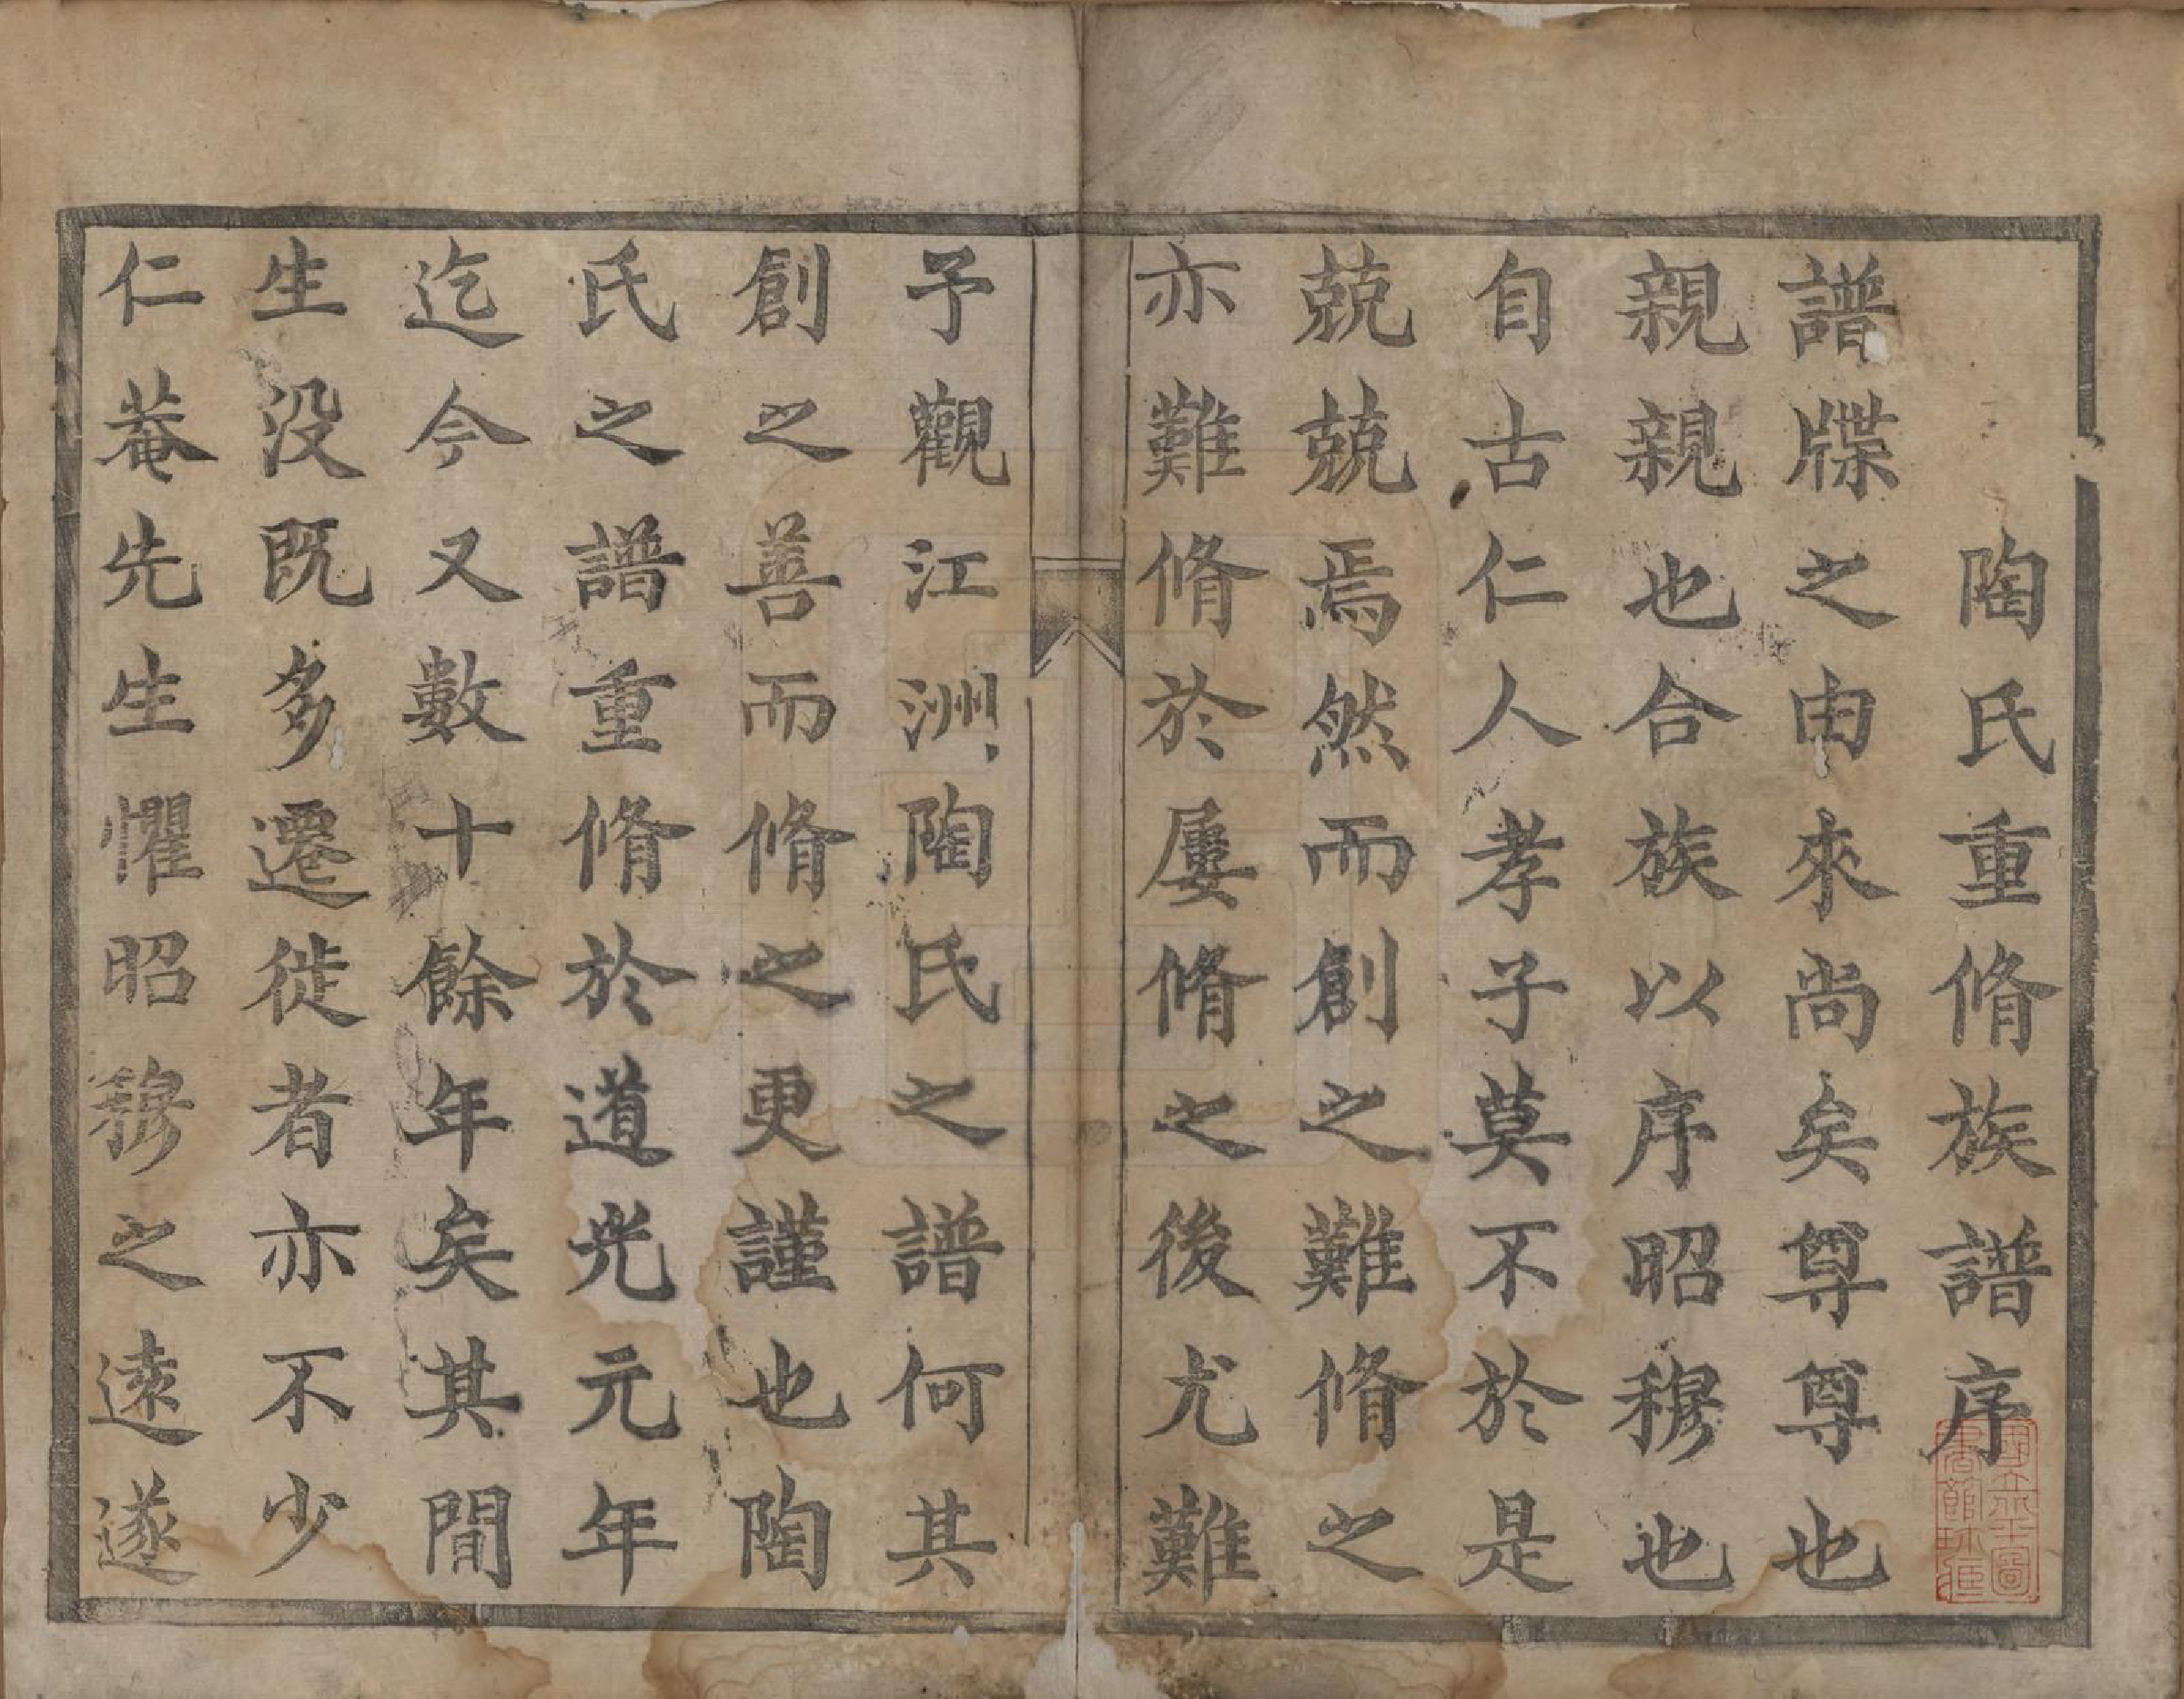 陶氏重脩族譜序
譜牒之由來尚矣尊尊也
親親也合族以序昭穆也
自古仁人孝子莫不於是
兢兢焉然而創之難脩之
亦難脩於屢脩之後尤難
予觀江洲陶氏之譜何其
創之善而脩之更謹也陶
氏之譜重脩於道光元年
迄今又數十餘年矣其間
生没既多遷徙者亦不少
仁菴先生懼昭穆之遠遂